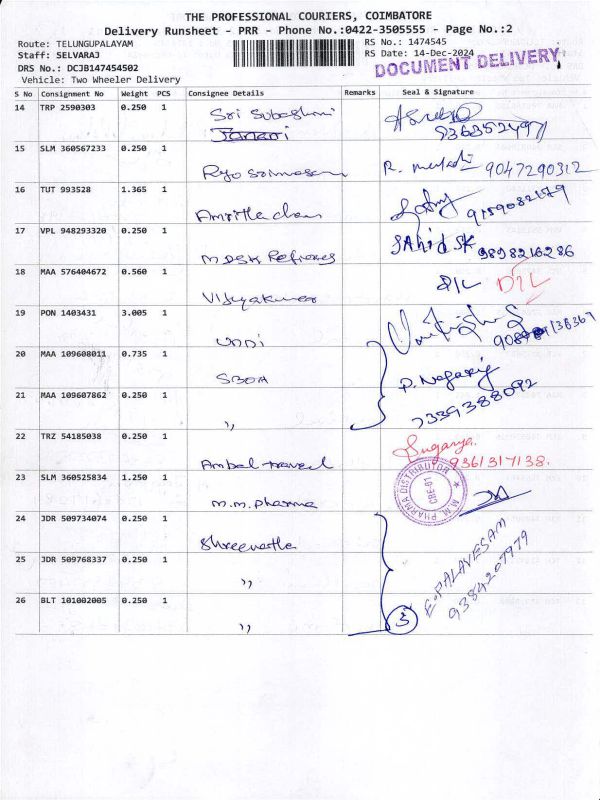 THE PROFESSIONAL COURIERS, COIMBATORE
Delivery Runsheet - PRR - Phone No.:0422-3505555 - Page No.:2
Route: TELUNGUPALAYAM RS No.: 1474545
Staff: SELVARAJ RS Date: 14-Dec-2024
DOCUMENT DELIVERY
DRS No.: DCJB147454502
Vehicle: Two Wheeler Delivery
S No Consignment No Weight PCS Consignee Details Remarks Seal & Signature
14 TRP 2590303 0.250 1
Janani
15 SLM 360567233 0.250 1
R. 9047290312
16 TUT 993528 1.365 1
9159082179
17 VPL 948293320 0.250 1 SAhid SK
9898216286
18 MAA 576404672 0.560 1 D/L D/L
Vijayakumar
19 PON 1403431 3.005 1
20 MAA 109608011 0.735 1
SBOA
21 MAA 109607862 0.250 1
7339388092
,,
22 TRZ 54185038 0.250 1 Suganya.
Ambal travel 9361317138.
23 SLM 360525834 1.250 1
M.M. PHARMA DISTRIBUTOR
CBE-01
M.M. Pharma
24 JDR 509734074 0.250 1
25 JDR 509768337 0.250 1
,,
E. PALAVESAM
9384207979
26 BLT 101002005 0.250 1
3
,,